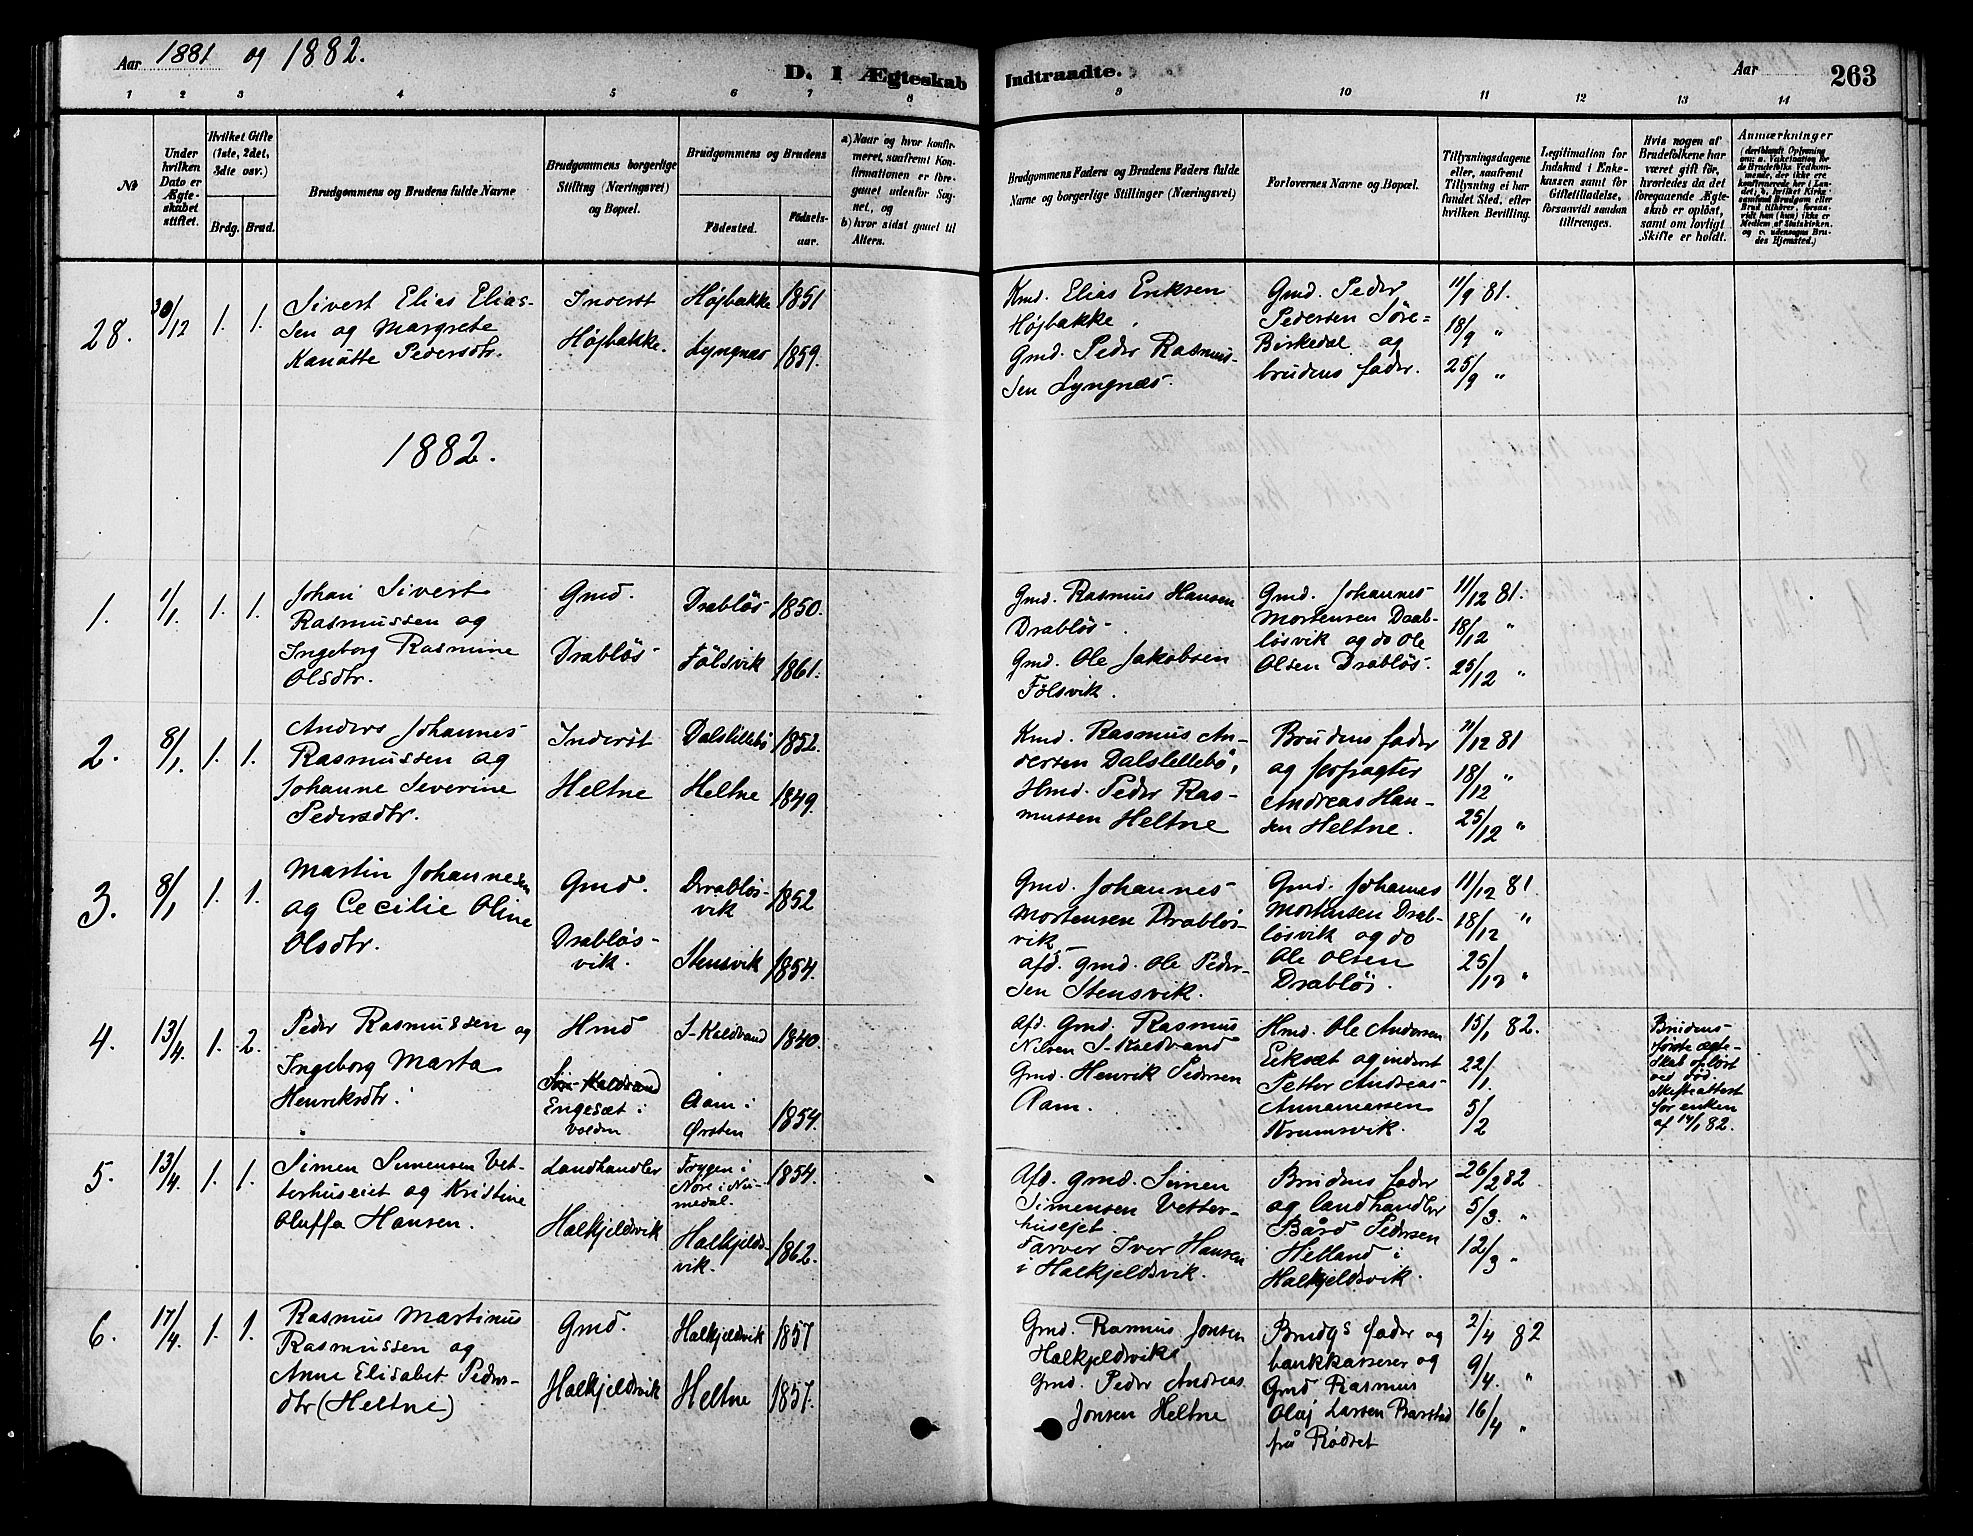 Aar 1881 og 1882.
D. I Ægteskab Indtraadte.
Aar
263
1 2 3 4 5 6 7 8 9 10 11 12 13 14
No
Under hvilken Dato er Ægteskabet stiftet.
Hvilket Gifte (1ste, 2det, 3die osv.)
Brdg. Brud.
Brudgommens og Brudens fulde Navne
Brudgommens borgerlige Stilling (Næringsvei) og Bopæl.
Brudgommens og Brudens
Fødested. Fødselsaar.
a) Naar og hvor konfirmeret, saafremt Konfirmationen er foregaaet udenfor Sognet, og
b) hvor sidst gaaet til Alters.
Brudgommens Faders og Brudens Faders fulde Navne og borgerlige Stillinger (Næringsvei)
Forlovernes Navne og Bopæl.
Tillysningsdagene eller, saafremt Tillysning ei har fundet Sted, efter hvilken Bevilling.
Legitimation for Indskud i Enkekassen samt for Giftetilladelse, forsaavidt saadan tiltrænges.
Hvis nogen af Brudefolkene har været gift før, hvorledes da det foregaaende Ægteskab er opløst, samt om lovligt Skifte er holdt.
Anmærkninger
28. 30/12 1. 1.
Sivert Elias Elias-
sen og Margrete
Pedersdtr.
Inderst
Højbakke.
Højbakke 1851
Lyngnæs 1859.
Kmd. Elias Eriksen
Højbakke.
Gmd. Peder Rasmus-
sen Lyngnæs.
Gmd. Peder
Pedersen Søre=
Birkedal og
brudens fader.
11/9 81.
18/9 "
25/9 "
1882.
1. 1/1 1. 1.
Johan Sivert
Rasmussen og
Ingeborg Rasmine
Olsdtr.
Gmd.
Drabløs
Drabløs 1850.
Følsvik 1861.
Gmd. Rasmus Hansen
Drabløs.
Gmd. Ole Jakobsen
Følsvik.
Gmd. Johannes
Mortensen Drab-
løsvik og do Ole
Olsen Drabløs.
11/12 81.
18/12 "
25/12 "
2. 8/1 1. 1.
Anders Johannes
Rasmussen og
Johanne Severine
Pedersdtr.
Inderst
Heltne
Dalslillebø 1852.
Heltne 1849.
Kmd. Rasmus An-
dersen Dalslillebø,
Hmd. Peder Ras-
mussen Heltne
Brudens fader
og forpagter
Andreas Han-
sen Heltne.
11/12 81
18/12 "
25/12 "
3. 8/1 1. 1.
Martin Johannesen
og Cecilie Oline
Olsdtr.
Gmd.
Drabløs-
vik.
Drabløs-
vik 1852
Stensvik 1854.
Gmd. Johannes
Mortensen Drabløs-
vik
Afd. gmd. Ole Peder-
sen Stensvik.
Gmd. Johannes
Mortensen Drab-
løsvik og do
Ole Olsen
Drabløs.
11/12 81.
18/12 "
25/12 "
4. 13/4. 1. 2.
Peder Rasmussen og
Ingeborg Marta
Henriksdtr.
Hmd
Søre-Kaldvand
Engesæt i
Volden
S-Kaldvand 1840.
Aam i
Ørsten 1854.
Afd. Gmd. Rasmus
Nilsen S-Kaldvand
Gmd. Henrik Pedersen
Aam.
Hmd. Ole Andersen
Eiksæt og inderst
Petter Andreas
Annamassen
Krumsvik.
15/1 82.
22/1.
5/2
Brudens
første ægte-
skab opløst
ved død.
Skifteattest
for enken
af 14/1 82.
5. 13/4. 1. 1.
Simen Simensen Vet-
terhuseiet og Kristine
Oluffa Hansen.
Landhandler
Halkjeldsvik
Frygen i
Nore i Nu-
medal. 1854.
Halkjelds-
vik. 1862.
Afd. gmd. Simen
Simensen Vetter-
husejet.
Farver Iver Hansen
i Halkjeldsvik.
Brudens fader
og landhandler
Bård Pedersen
Helland i
Halkjeldsvik.
26/2 82
5/3. "
12/3 "
6. 17/4. 1. 1.
Rasmus Martinus
Rasmussen og
Anne Elisabet Peders-
dtr (Heltne)
Gmd.
Halkjeldsvik
Halkjeldsvik 1857
Heltne 1857.
Gmd. Rasmus Jonsen
Halkjeldsvik
Gmd. Peder Andreas
Jonsen Heltne
Brudgs fader og
bankkasserer og
Gmd Rasmus
Olaj Larsen Barstad
frå Rødset
2/4 82
9/4. "
16/4 "